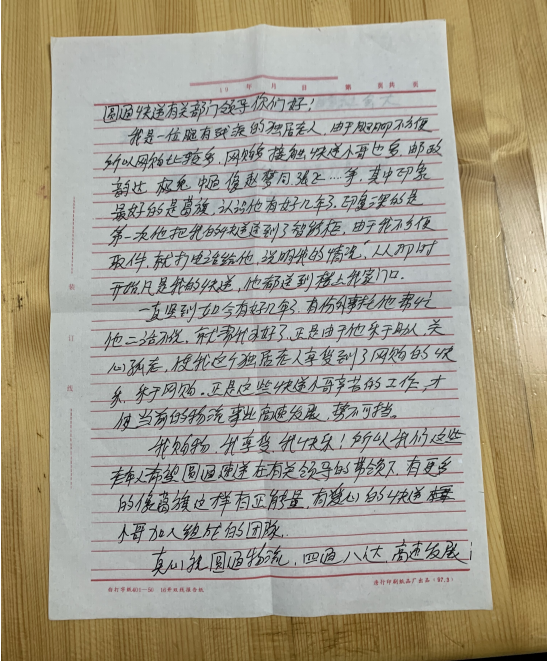 19 年 月 日 第 页共 页
圆通快递有关部门领导你们好！
我是一位腿有残疾的独居老人，由于腿脚不方便
所以网购比较多，网购多接触快递小哥也多 邮政
韵达 极兔 中通 像赵 张 等，其中印象
最好的是高旗，认识他有好几年了，印象深的是
第一次他把我的快递送到了智能柜，由于我不方便
取件，就打电话给他，说明我的情况，从那时
开始凡是我的快递，他都送到楼上我家门口。
一直坚到如今有好几年了，有份外事托他帮忙
他二话不说，就帮我办好了，正是由于他乐于助人 关
心孤老，使我这个独居老人享受到了网购的快
乐，乐于网购。正是这些快递小哥辛苦的工作，才
使当前的物流事业高速发展，势不可挡。
我购物，我享受，我快乐！所以我们这些
老年人希望圆通速递在有关领导的带领下，有更多
的像高旗这样有正能量，有爱心的快递
小哥加入组成的团队。
真心祝圆通物流，四通八达，高速发展！
装
订
线